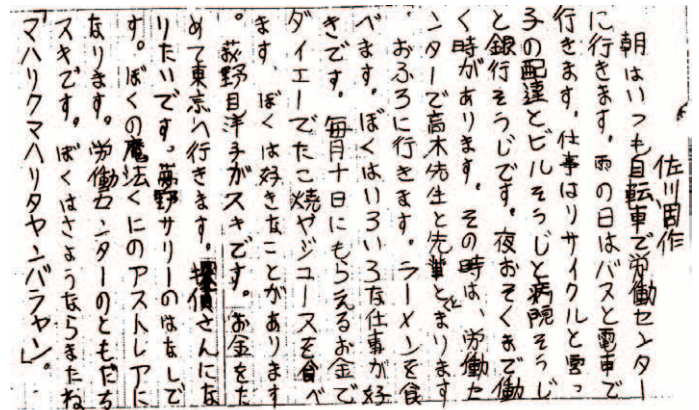 佐川周作
朝はいつも自転車で労働センター
に行きます。雨の日はバスと電車で
行きます。仕事はリサイクルと雪っ
子の配達とビルそうじと病院そうじ
と銀行そうじです。夜おそくまで働
く時があります。その時は、労働セ
ンターで高木先生と先輩ととまります
おふろに行きます。ラーメンを食
べます。ぼくはいろいろな仕事が好
きです。毎月十日にもらえるお金で
ダイエーでたこ焼やジュースを食べ
ます。ぼくは好きなことがあります
。荻野目洋子がスキです。お金をた
めて東京へ行きます。探偵さんにな
りたいです。荻野サリーのはなしで
す。ぼくの魔法くにのアストレアに
なります。労働センターのともだちも
スキです。ぼくはさようならまたね
「マハリクマハリタヤンバラヤン」。